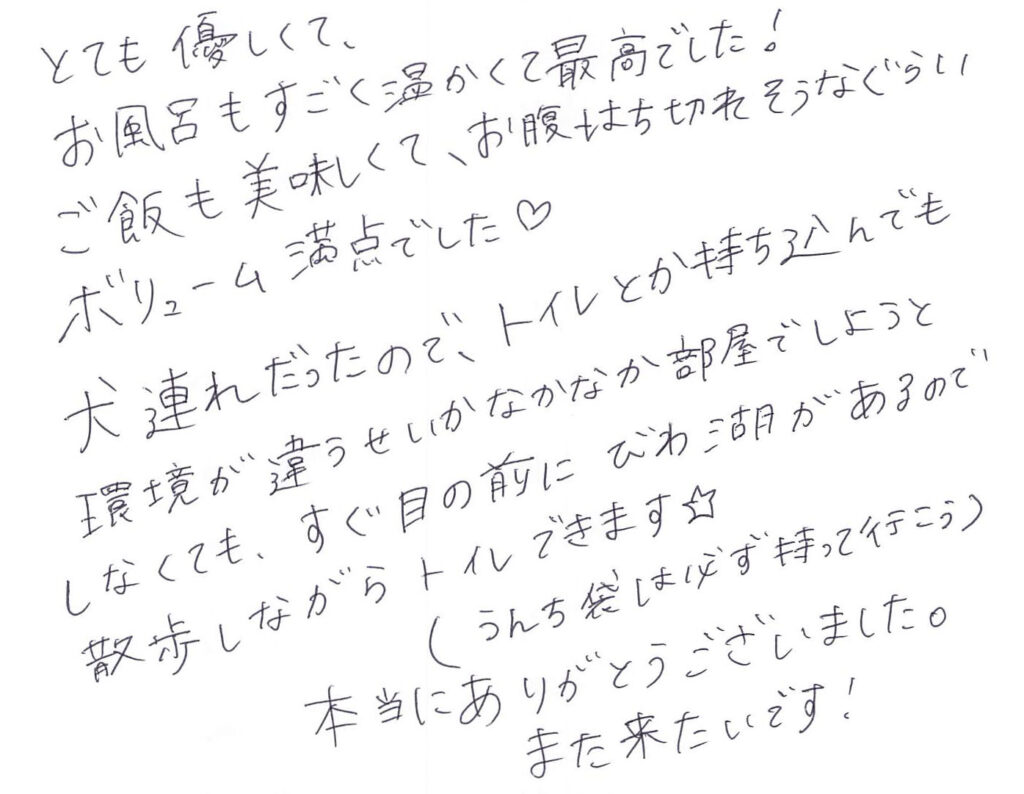 とても優しくて、
お風呂もすごく温かくて最高でした!
ご飯も美味しくて、お腹はち切れそうなぐらい
ボリューム満点でした♡
犬連れだったので、トイレとか持ち込んでも
環境が違うせいかなかなか部屋でしようと
しなくても、すぐ目の前にびわ湖があるので
散歩しながらトイレできます☆
(うんち袋は必ず持って行こう)
本当にありがとうございました。
また来たいです!